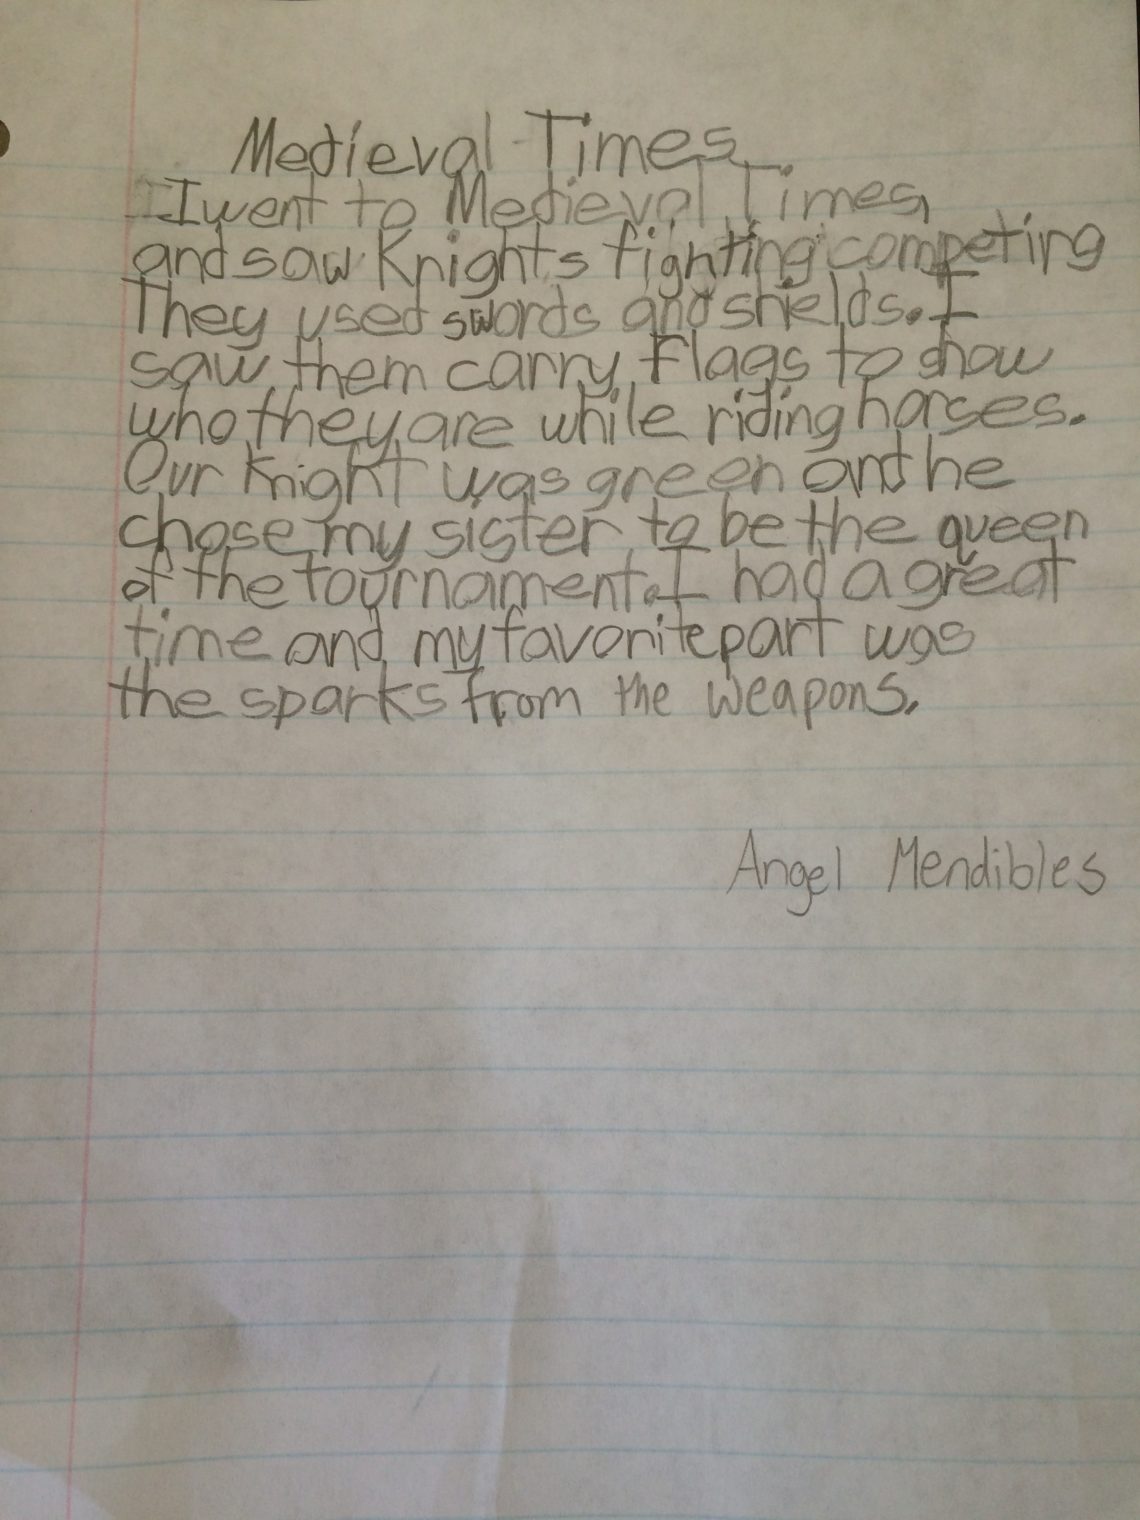 Medieval Times
I went to Medieval Times,
and saw Knights fighting competing
They used swords and shields. I
saw them carry Flags to show
who they are while riding horses.
Our Knight was green and he
chose my sister to be the queen
of the tournament. I had a great
time and my favorite part was
the sparks from the weapons.
Angel Mendibles